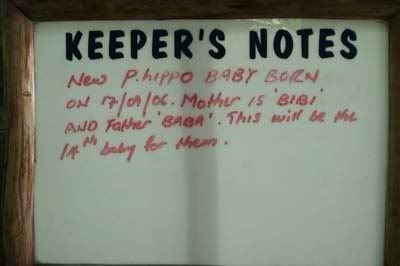 KEEPER'S NOTES
New P.HIPPO BABY BORN
ON 17/09/06. Mother is 'BIBI'
AND Father 'BABA'. This will be the
14th baby for them.